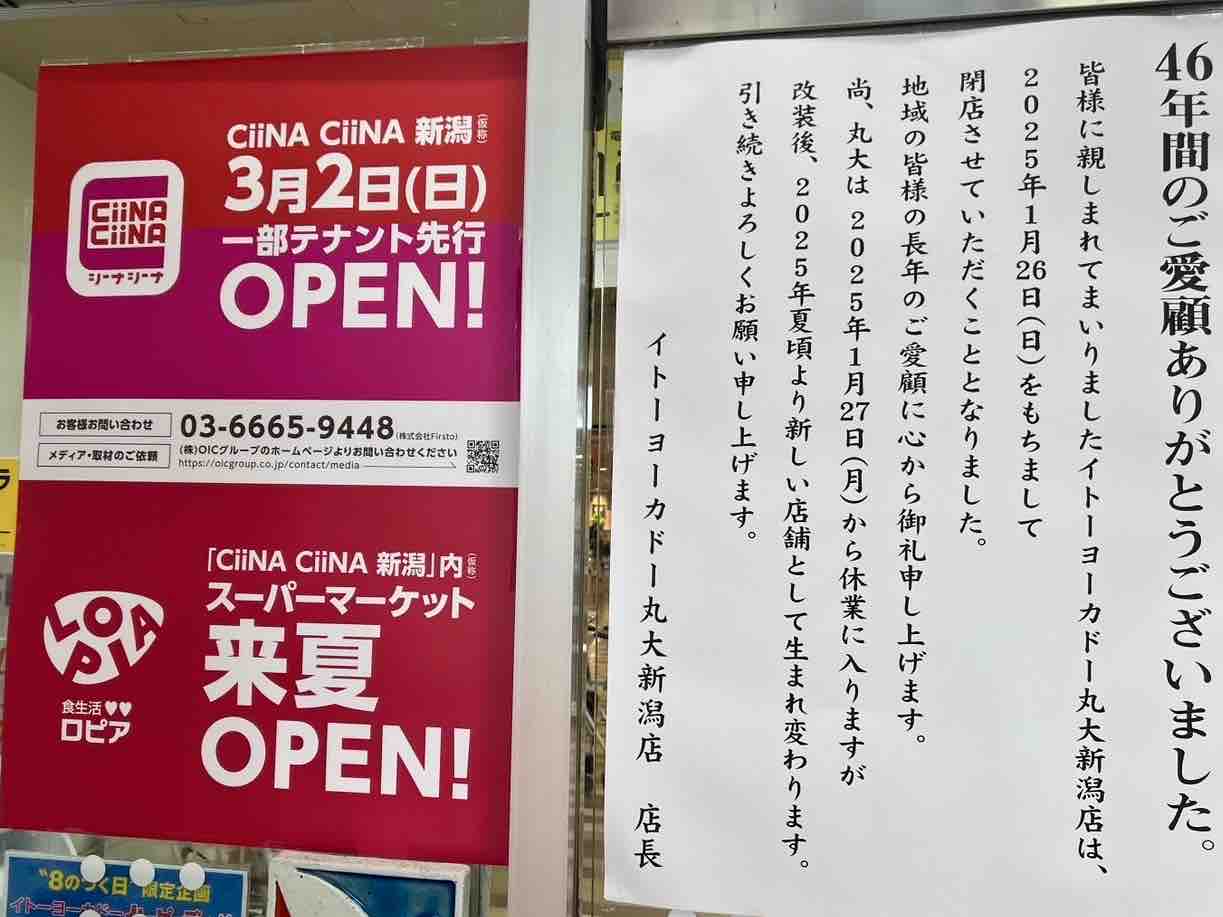 CiiNA CiiNA 新潟(仮称)
3月2日(日)
一部テナント先行
OPEN!
CiiNA
CiiNA
シーナシーナ
お客様お問い合わせ
03-6665-9448(株式会社Firsto)
メディア・取材のご依頼
(株)OICグループのホームページよりお問い合わせください
https://oicgroup.co.jp/contact/media
「CiiNA CiiNA 新潟」内(仮称)
スーパーマーケット
来夏
OPEN!
LOPIA
食生活♥♥
ロピア
"8のつく日"限定企画
46年間のご愛顧ありがとうございました。
皆様に親しまれてまいりましたイトーヨーカドー丸大新潟店は、
2025年1月26日(日)をもちまして
閉店させていただくこととなりました。
地域の皆様の長年のご愛顧に心から御礼申し上げます。
尚、丸大は 2025年1月27日(月)から休業に入りますが
改装後、2025年夏頃より新しい店舗として生まれ変わります。
引き続きよろしくお願い申し上げます。
イトーヨーカドー丸大新潟店 店長